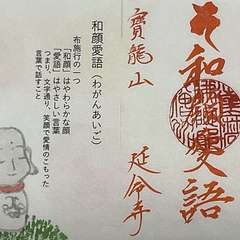 和顔愛語
寳龍山
延命寺
和顔愛語（わがんあいご）
布施行の一つ
「和顔」はやわらかな顔
「愛語」はやさしい言葉
つまり、文字通り、笑顔で愛情のこもった
言葉で話すこと